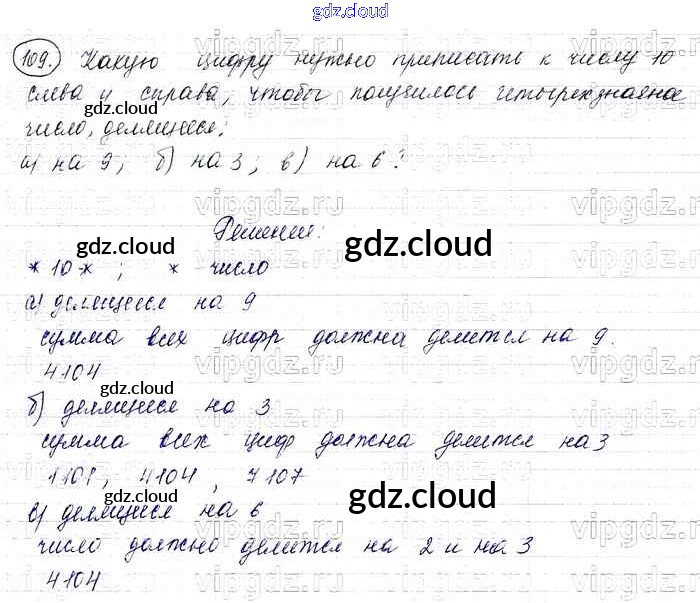 gdz.cloud
109. Какую цифру нужно приписать к числу 10
слева и справа, чтобы получилось четырехзначное
число, делящееся:
а) на 9; б) на 3; в) на 6?
gdz.cloud
Решение:
gdz.cloud
gdz.cloud
*10*; * - число
а) делящееся на 9
сумма всех цифр должна делится на 9.
4104
gdz.cloud
б) делящееся на 3
сумма всех циф должна делится на 3
1101, 4104, 7107
gdz.cloud
gdz.cloud
в) делящееся на 6
число должно делится на 2 и на 3
4104
vipgdz.ru